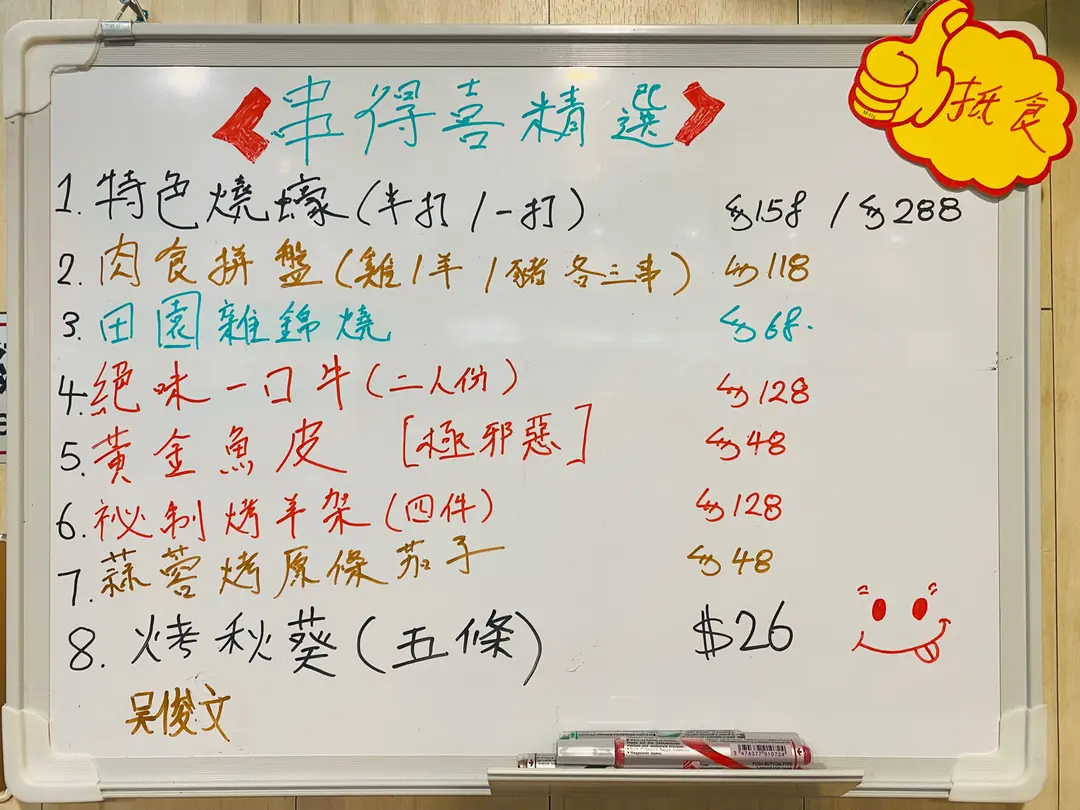 《串得喜精選》
抵食
1. 特色燒蠔(半打/一打) $158 / $288
2. 肉食拼盤(雞/羊/豬各三串) $118
3. 田園雜錦燒 $68.
4. 絕味一口牛(二人份) $128
5. 黃金魚皮 [極邪惡] $48
6. 祕制烤羊架(四件) $128
7. 蒜蓉烤原條茄子 $48
8. 烤秋葵(五條) $26
吴俊文
3 474377 910724